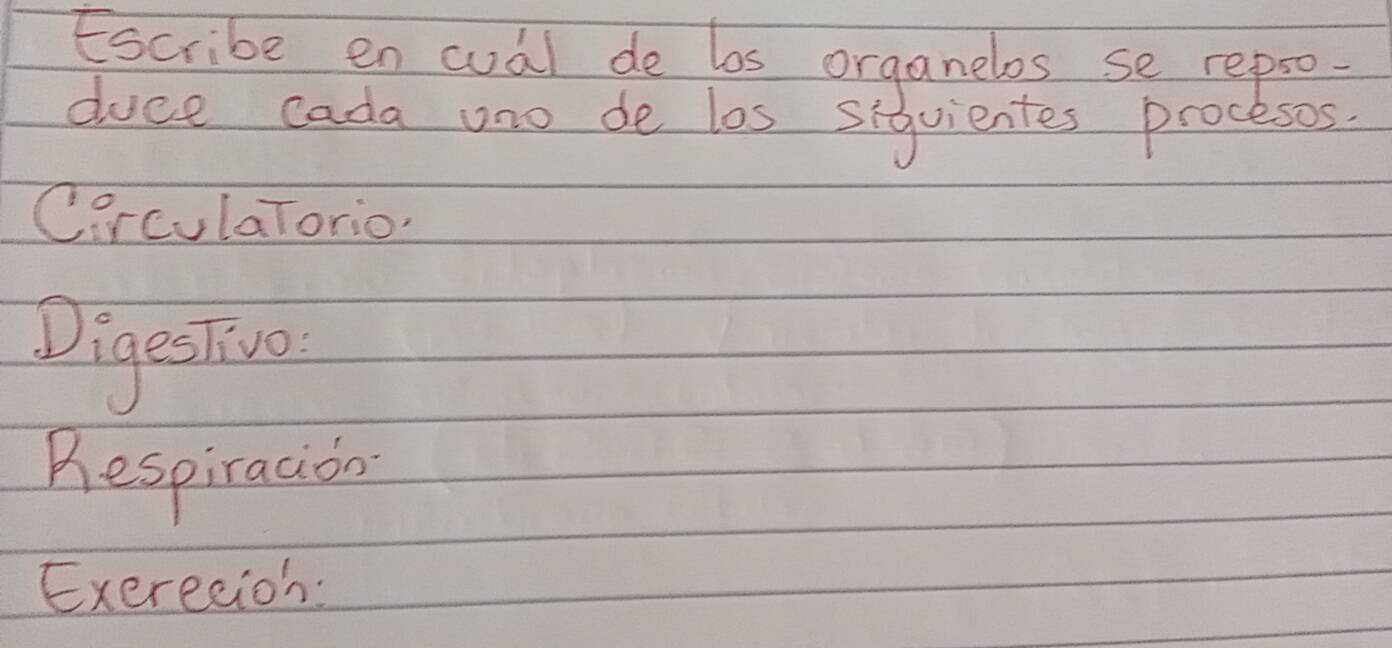 Escribe en cuál de los organelos se repro-
duce cada uno de los siguientes procesos.
Circulatorio.
Digestivo:
Respiración.
Exereción: